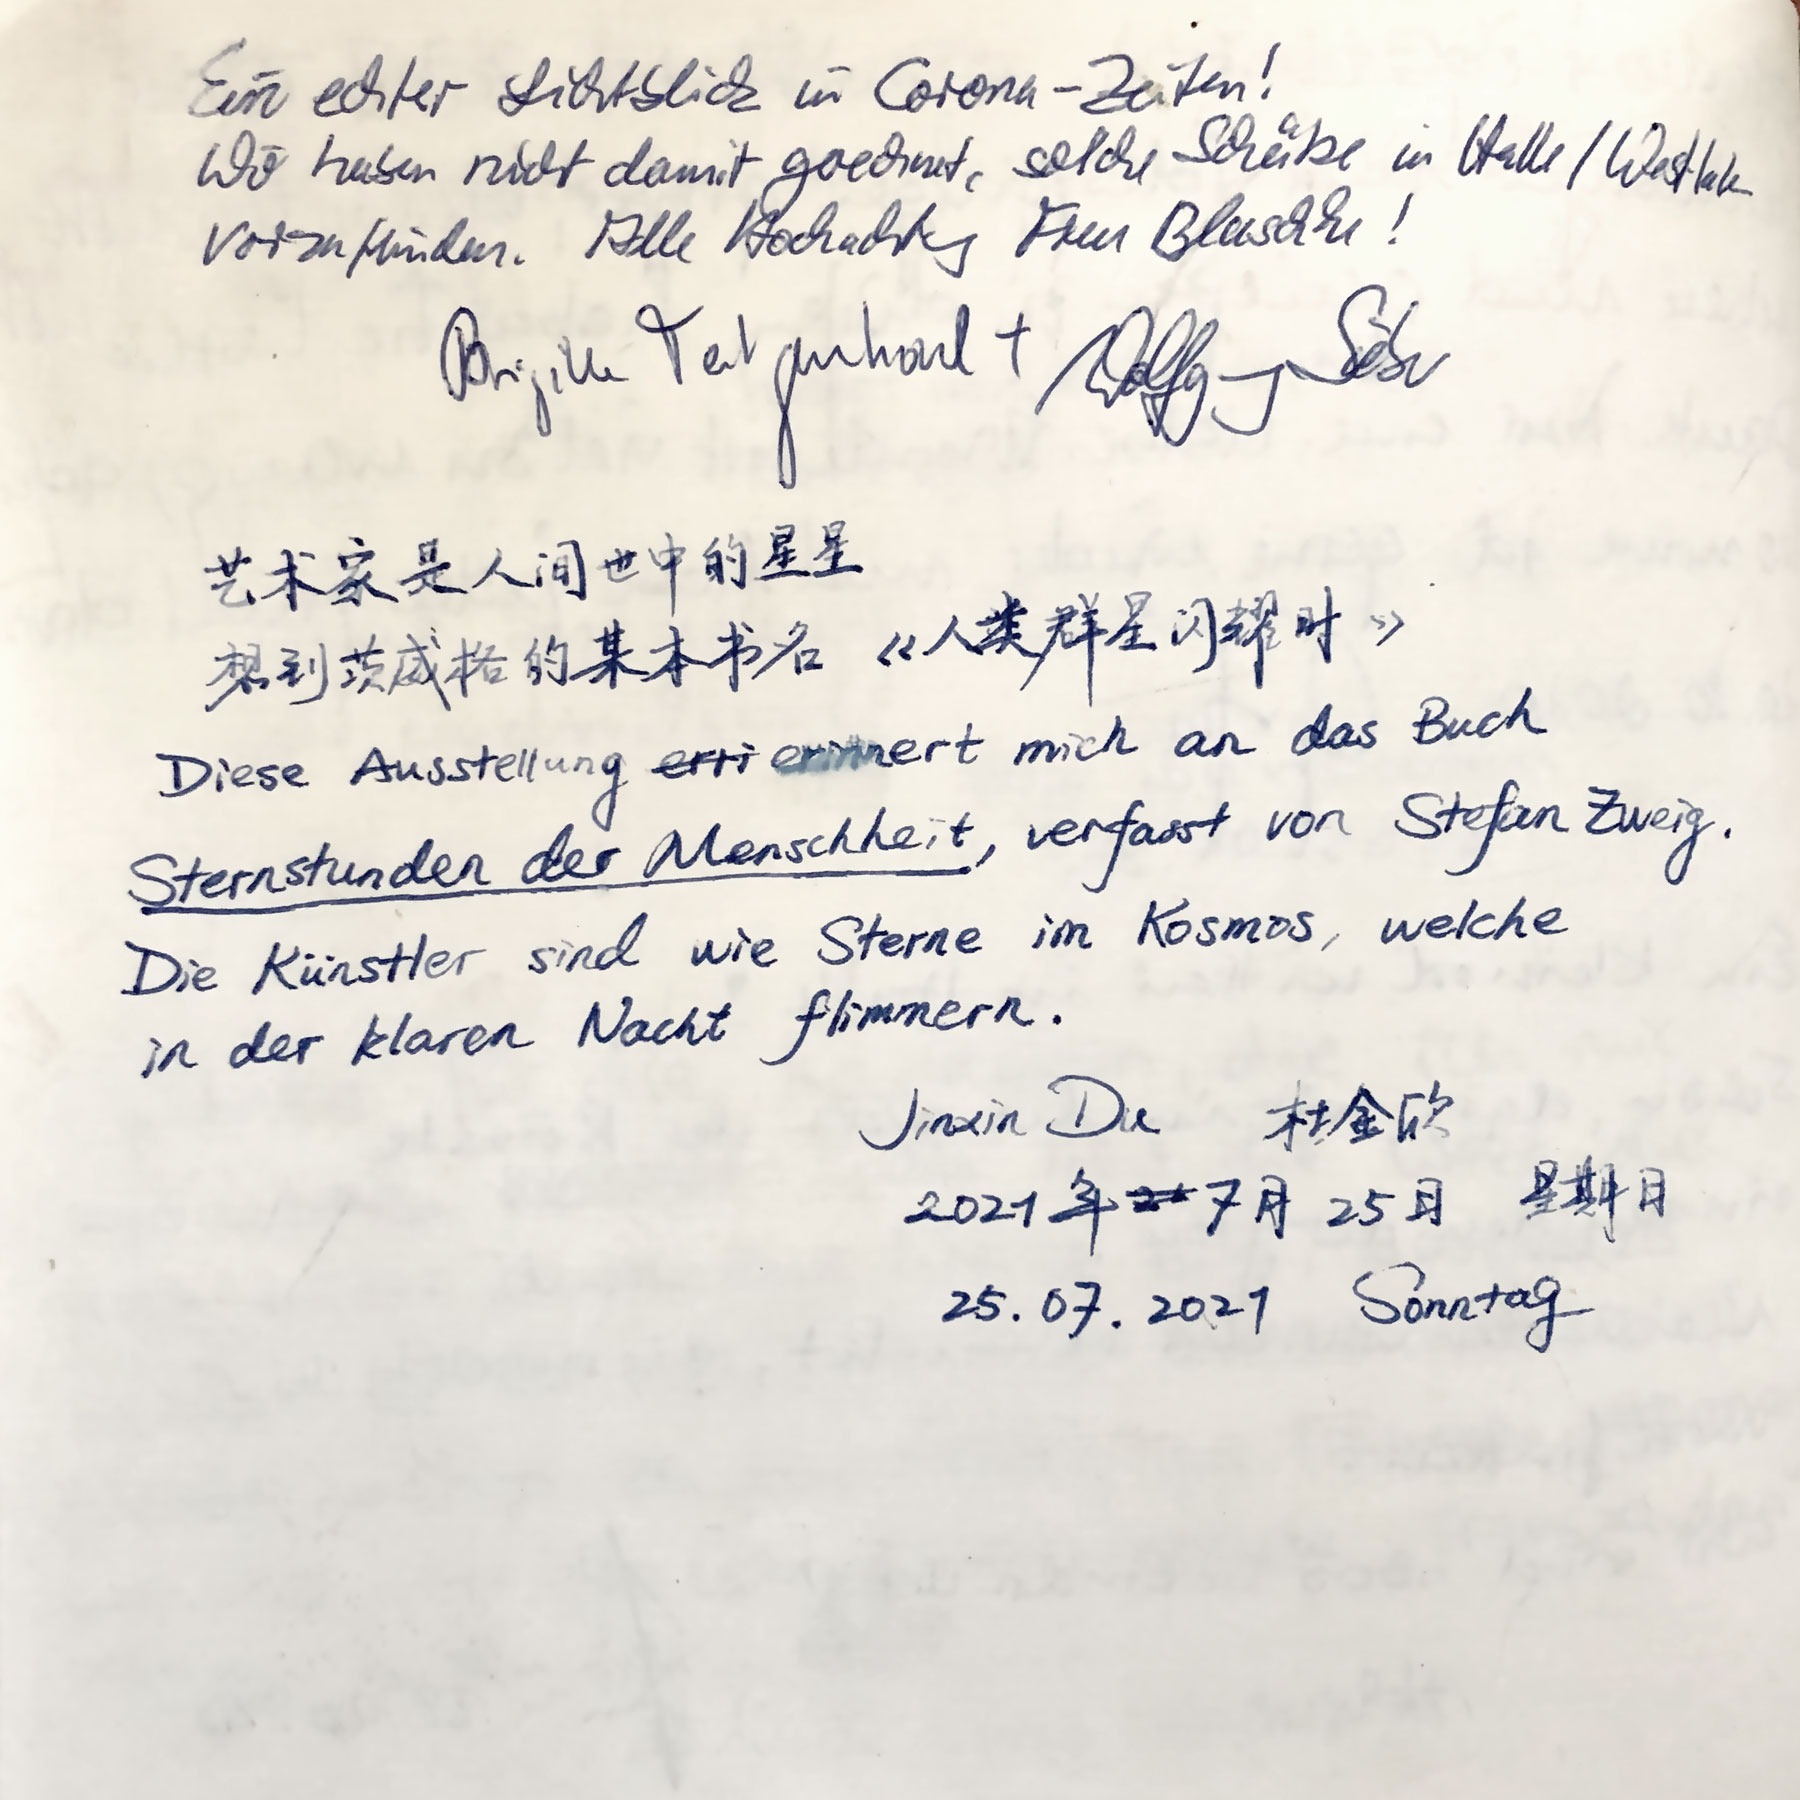 Ein echter Lichtblick in Corona-Zeiten!
Wir haben nicht damit gerechnet, solche Schätze in Halle/Westfalen
vorzufinden. Alle Hochachtung Frau Blaschke!
Brigitte + Wolfgang
艺术家是人间世中的星星
想到茨威格的某本书名《人类群星闪耀时》
Diese Ausstellung erri erinnert mich an das Buch
Sternstunden der Menschheit, verfasst von Stefan Zweig.
Die Künstler sind wie Sterne im Kosmos, welche
in der klaren Nacht flimmern.
Jinxin Du 杜金欣
2021年7月25日 星期日
25.07.2021 Sonntag